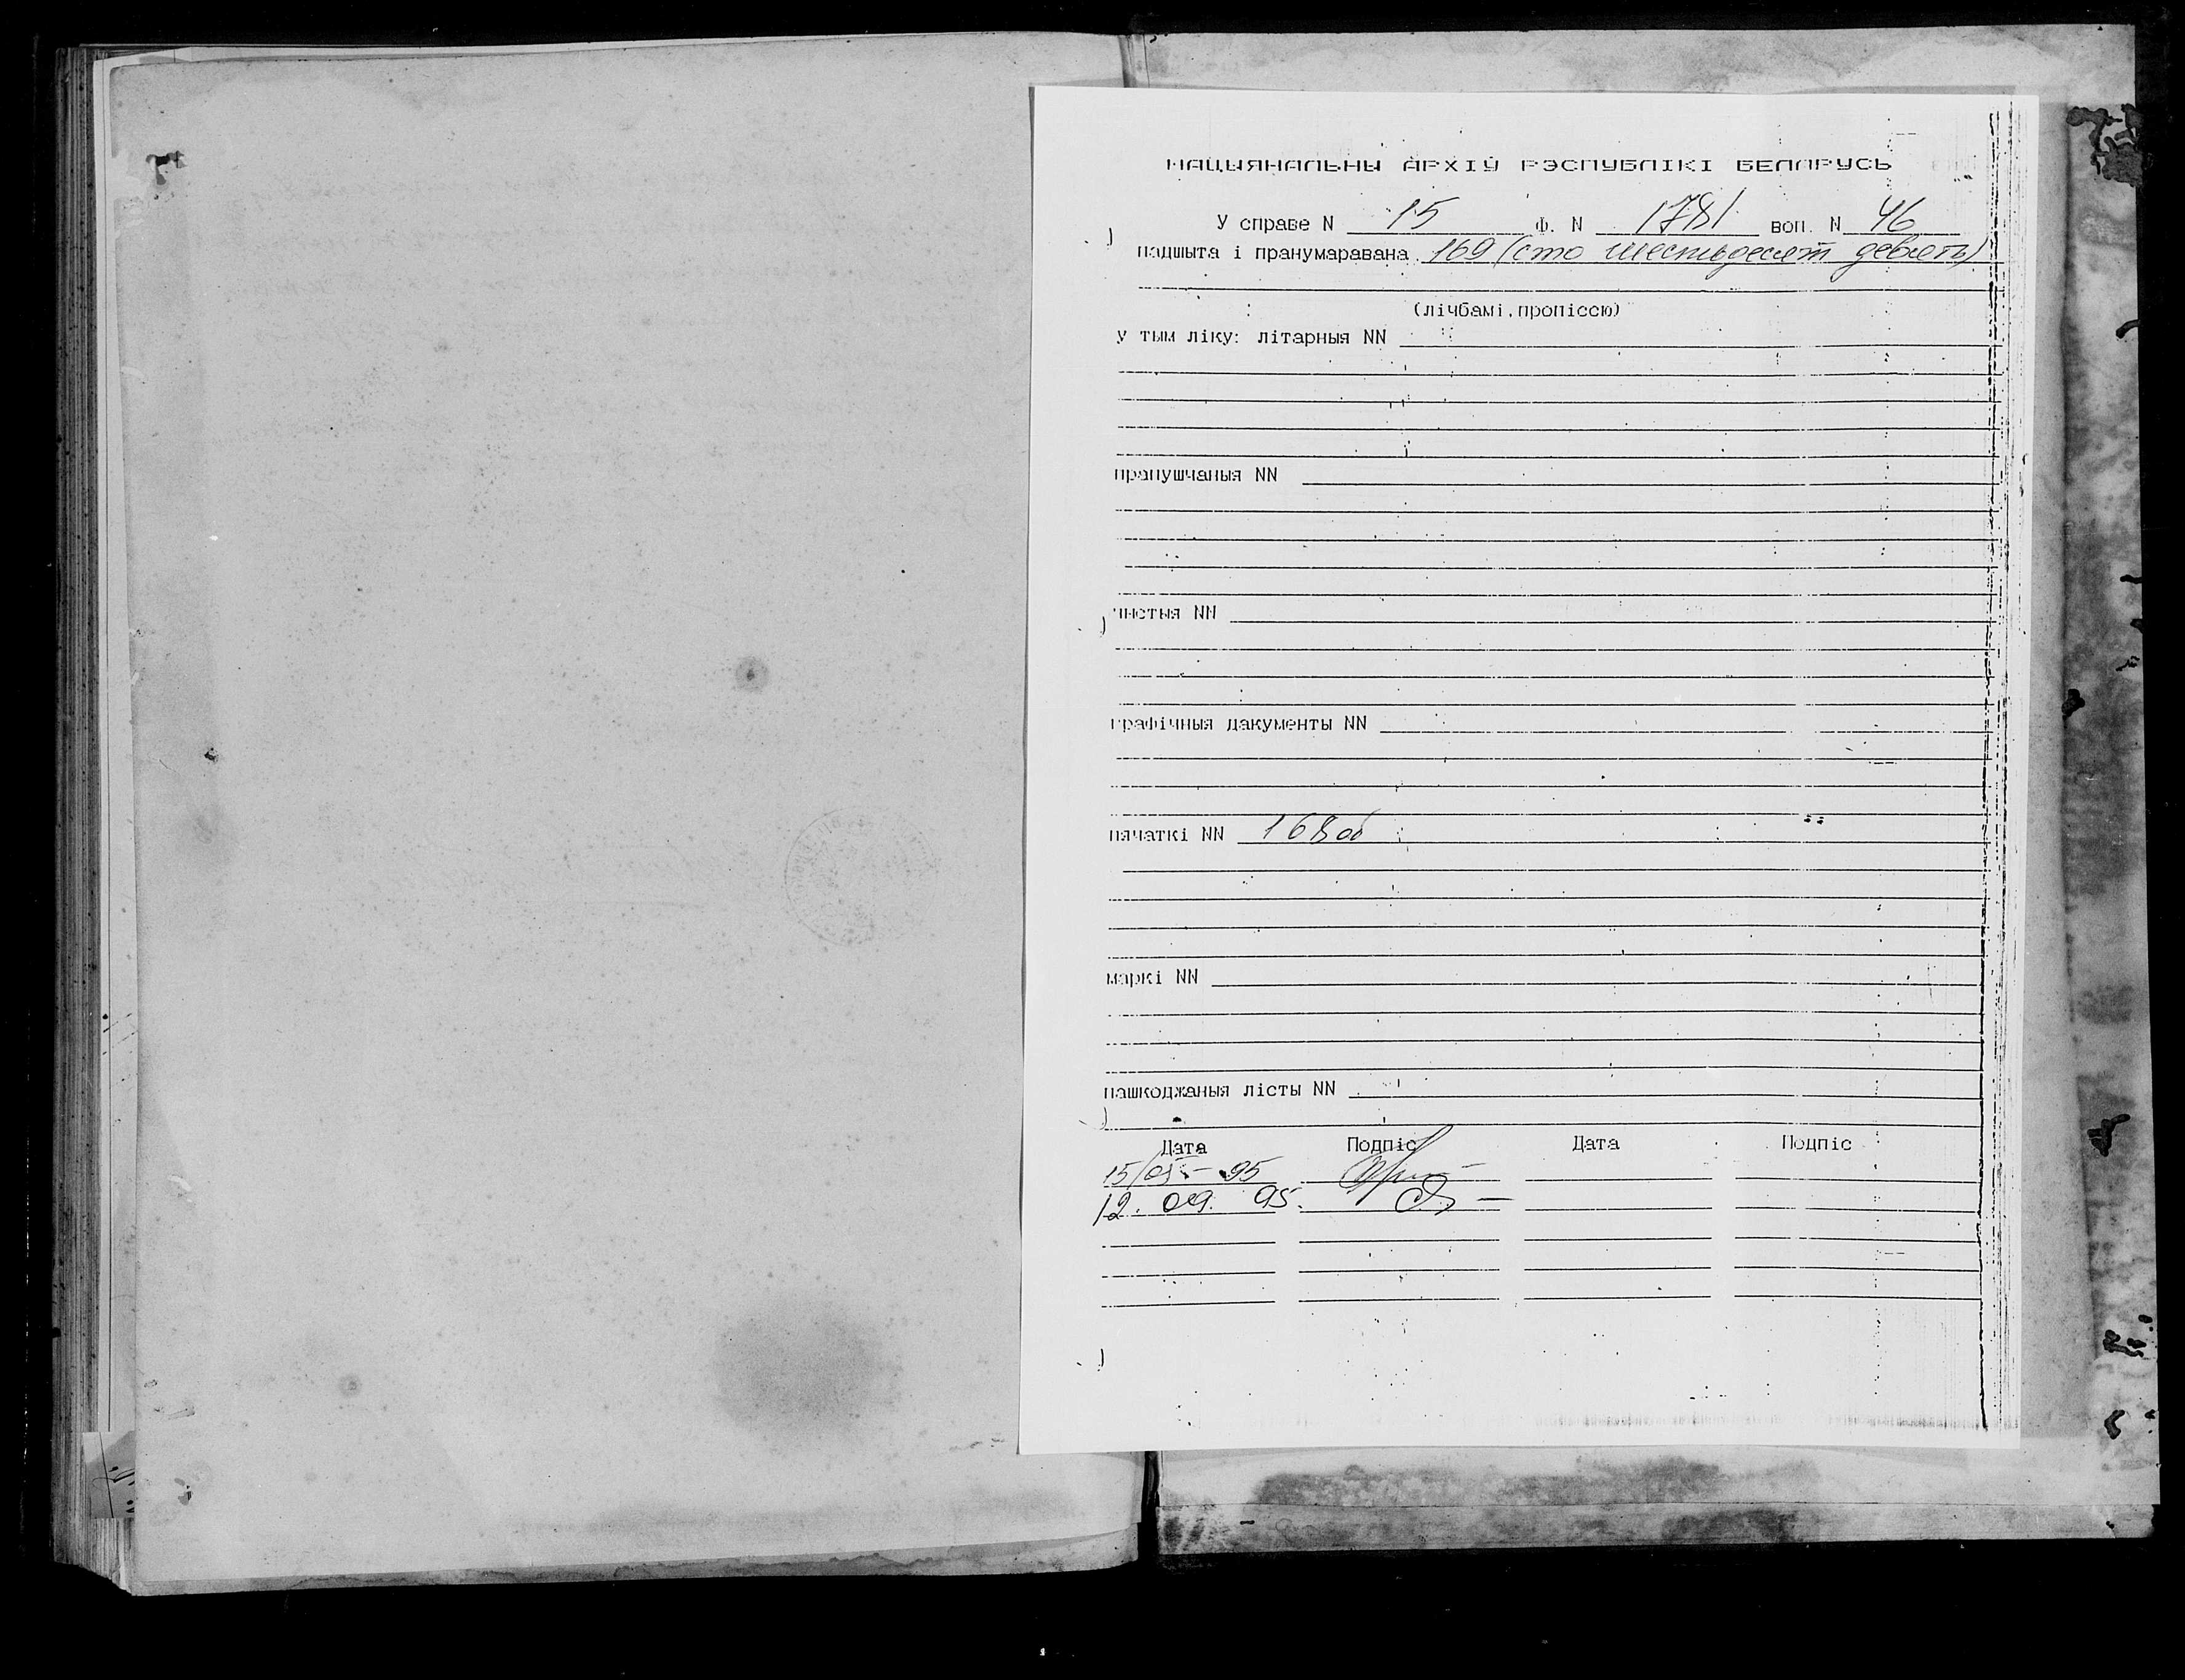 НАЦЫЯНАЛЬНЫ АРХІЎ РЭСПУБЛІКІ БЕЛАРУСЬ
У справе N 15 Ф. N 1781 воп. N 46
падшыта і пранумаравана 169 (сто шестьдесят девять)
(лічбамі, пропіссю)
у тым ліку: літарныя NN
прапушчаныя NN
чыстыя NN
графічныя дакументы NN
пячаткі NN 168об
маркі NN
пашкоджаныя лісты NN
Дата Подпіс Дата Подпіс
15/05 - 95
12. 09. 95.